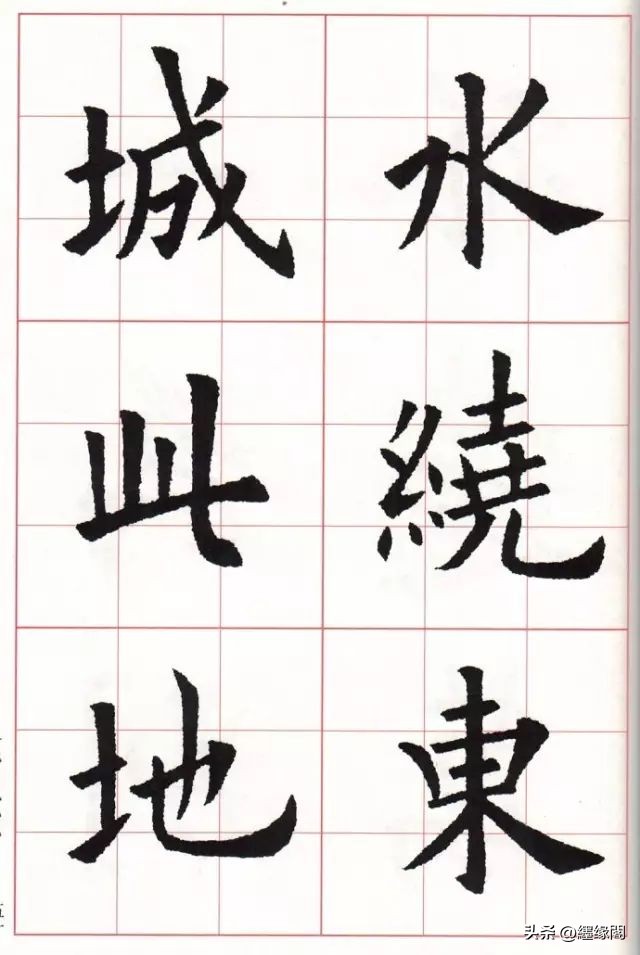 水繞東
城此地
头条 @纒缘閣